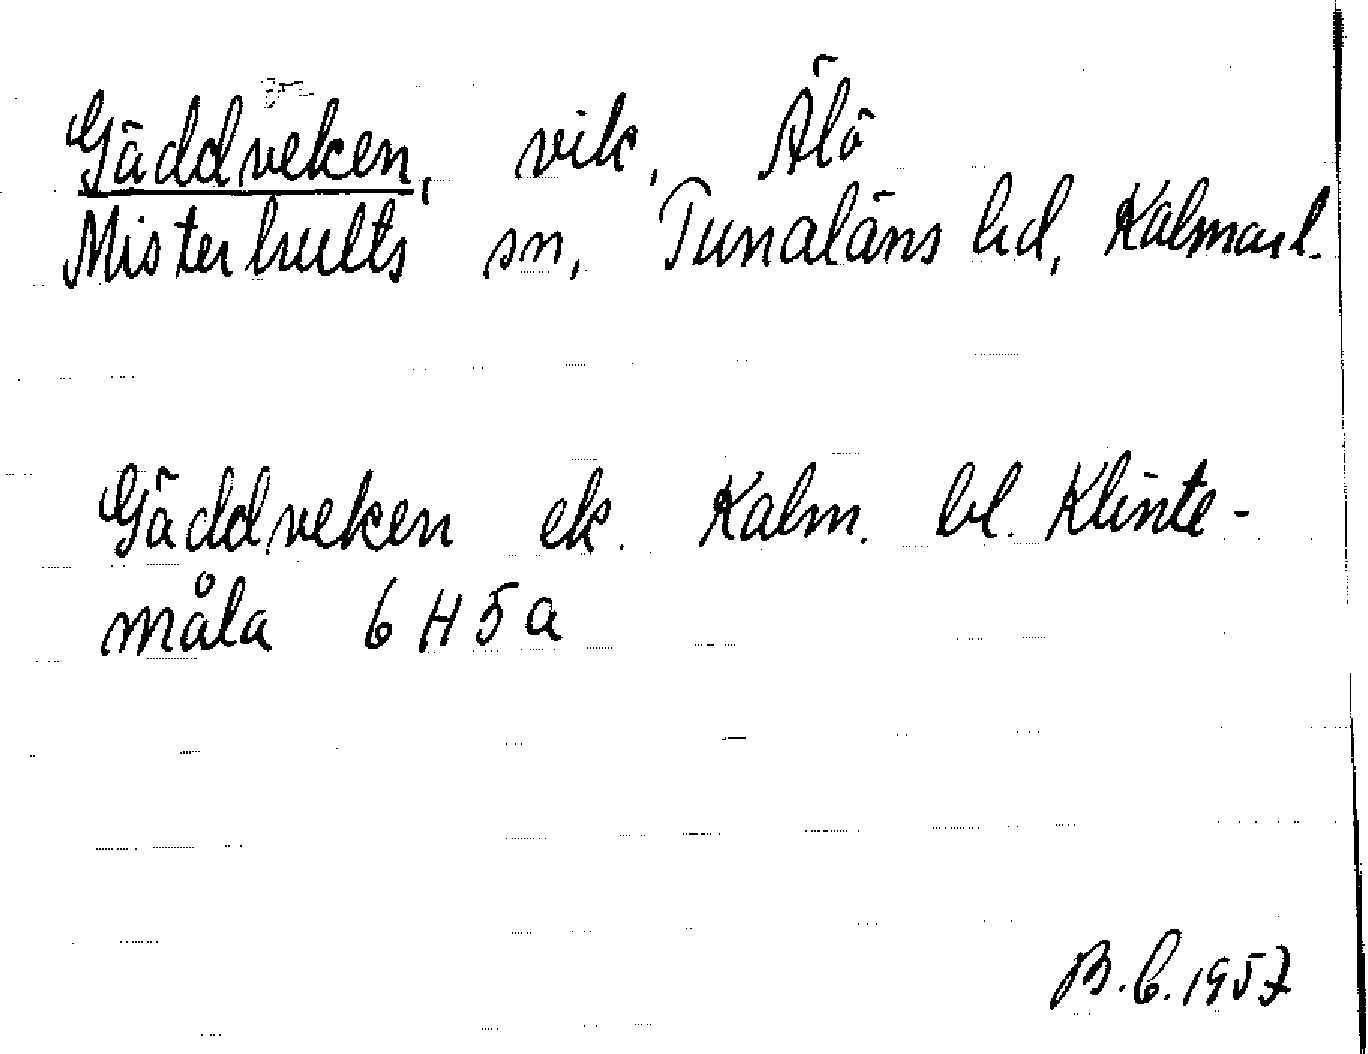 Gäddveken, vik, Älö
Misterhults sn, Tunaläns hd, Kalmar l.
Gäddveken ek. Kalm. bl. Klinte-
måla 6 H 5 a
B.C. 1957